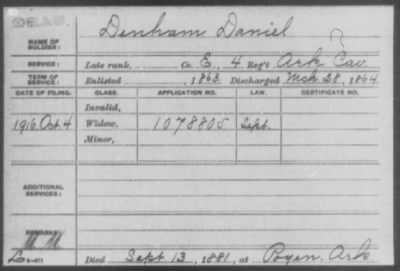 DEAD.
NAME OF SOLDIER: Denham Daniel
SERVICE: Late rank, Co. E, 4 Reg't Ark Cav.
TERM OF SERVICE: Enlisted , 1863. Discharged Mch 28, 1864
DATE OF FILING. CLASS. APPLICATION NO. LAW. CERTIFICATE NO.
Invalid,
1916 Oct. 4 Widow, 1078805 Sept.
Minor,
ADDITIONAL SERVICES:
REMARKS:
Died Sept 13, 1881, at Poyen, Ark